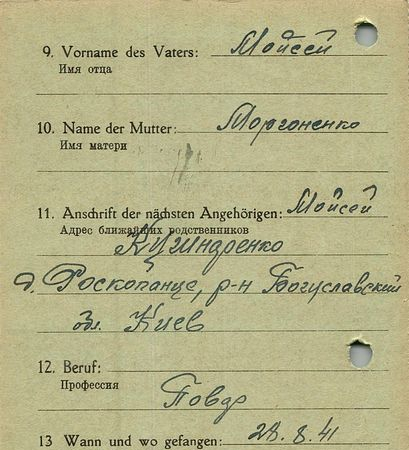 9. Vorname des Vaters: Мойсей
Имя отца
10. Name der Mutter: Моргоненко
Имя матери
11. Anschrift der nächsten Angehörigen: Мойсей
Адрес ближайших родственников
д. Роскопанце, р-н Богуславский
обл. Киев
12. Beruf:
Профессия
Повар
13 Wann und wo gefangen: 28. 8. 41